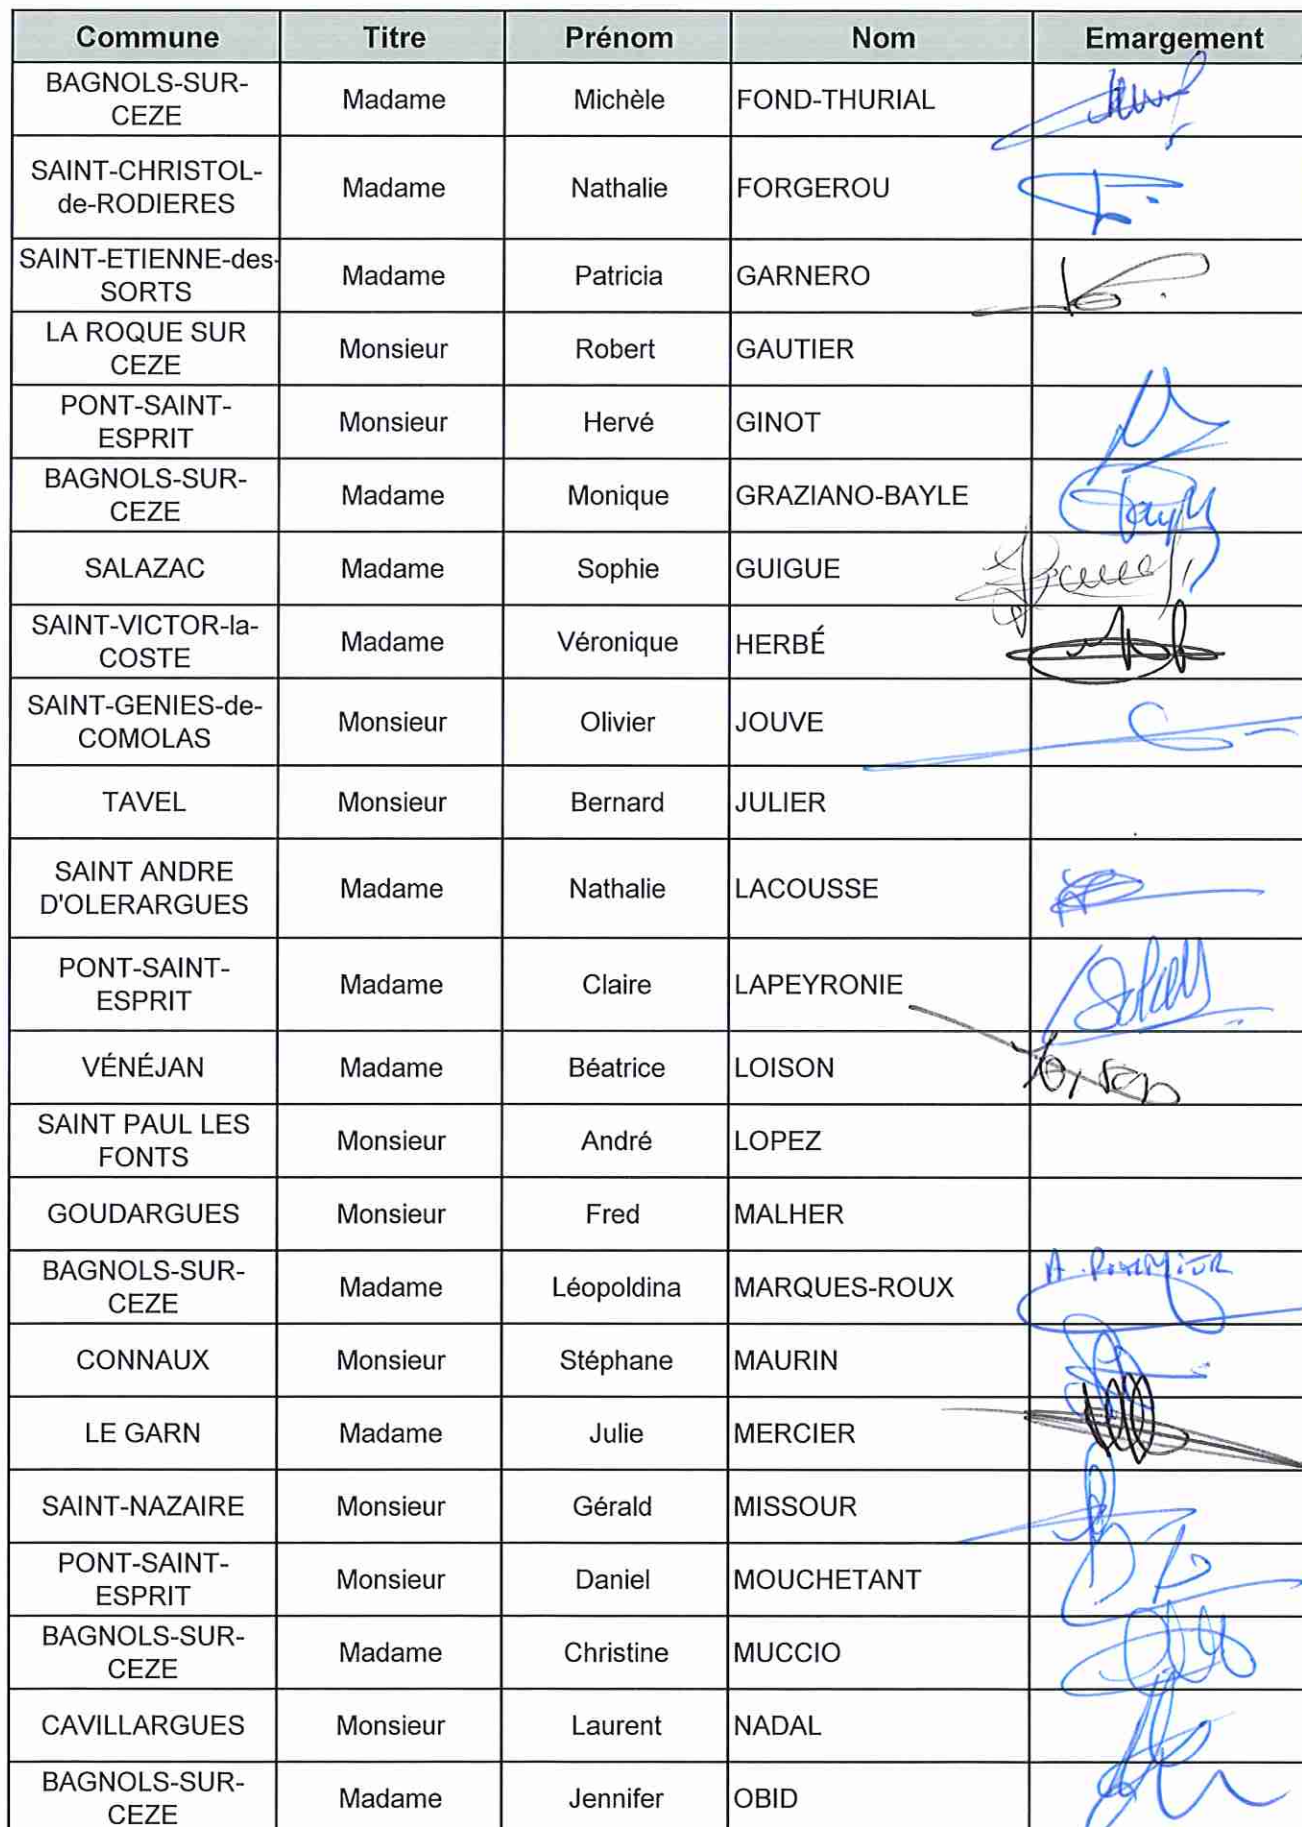 Commune Titre Prénom Nom Emargement
BAGNOLS-SUR-
CEZE Madame Michèle FOND-THURIAL
SAINT-CHRISTOL-
de-RODIERES Madame Nathalie FORGEROU
SAINT-ETIENNE-des-
SORTS Madame Patricia GARNERO
LA ROQUE SUR
CEZE Monsieur Robert GAUTIER
PONT-SAINT-
ESPRIT Monsieur Hervé GINOT
BAGNOLS-SUR-
CEZE Madame Monique GRAZIANO-BAYLE
SALAZAC Madame Sophie GUIGUE
SAINT-VICTOR-la-
COSTE Madame Véronique HERBÉ
SAINT-GENIES-de-
COMOLAS Monsieur Olivier JOUVE
TAVEL Monsieur Bernard JULIER
SAINT ANDRE
D'OLERARGUES Madame Nathalie LACOUSSE
PONT-SAINT-
ESPRIT Madame Claire LAPEYRONIE
VÉNÉJAN Madame Béatrice LOISON
SAINT PAUL LES
FONTS Monsieur André LOPEZ
GOUDARGUES Monsieur Fred MALHER
BAGNOLS-SUR-
CEZE Madame Léopoldina MARQUES-ROUX
CONNAUX Monsieur Stéphane MAURIN
LE GARN Madame Julie MERCIER
SAINT-NAZAIRE Monsieur Gérald MISSOUR
PONT-SAINT-
ESPRIT Monsieur Daniel MOUCHETANT
BAGNOLS-SUR-
CEZE Madame Christine MUCCIO
CAVILLARGUES Monsieur Laurent NADAL
BAGNOLS-SUR-
CEZE Madame Jennifer OBID